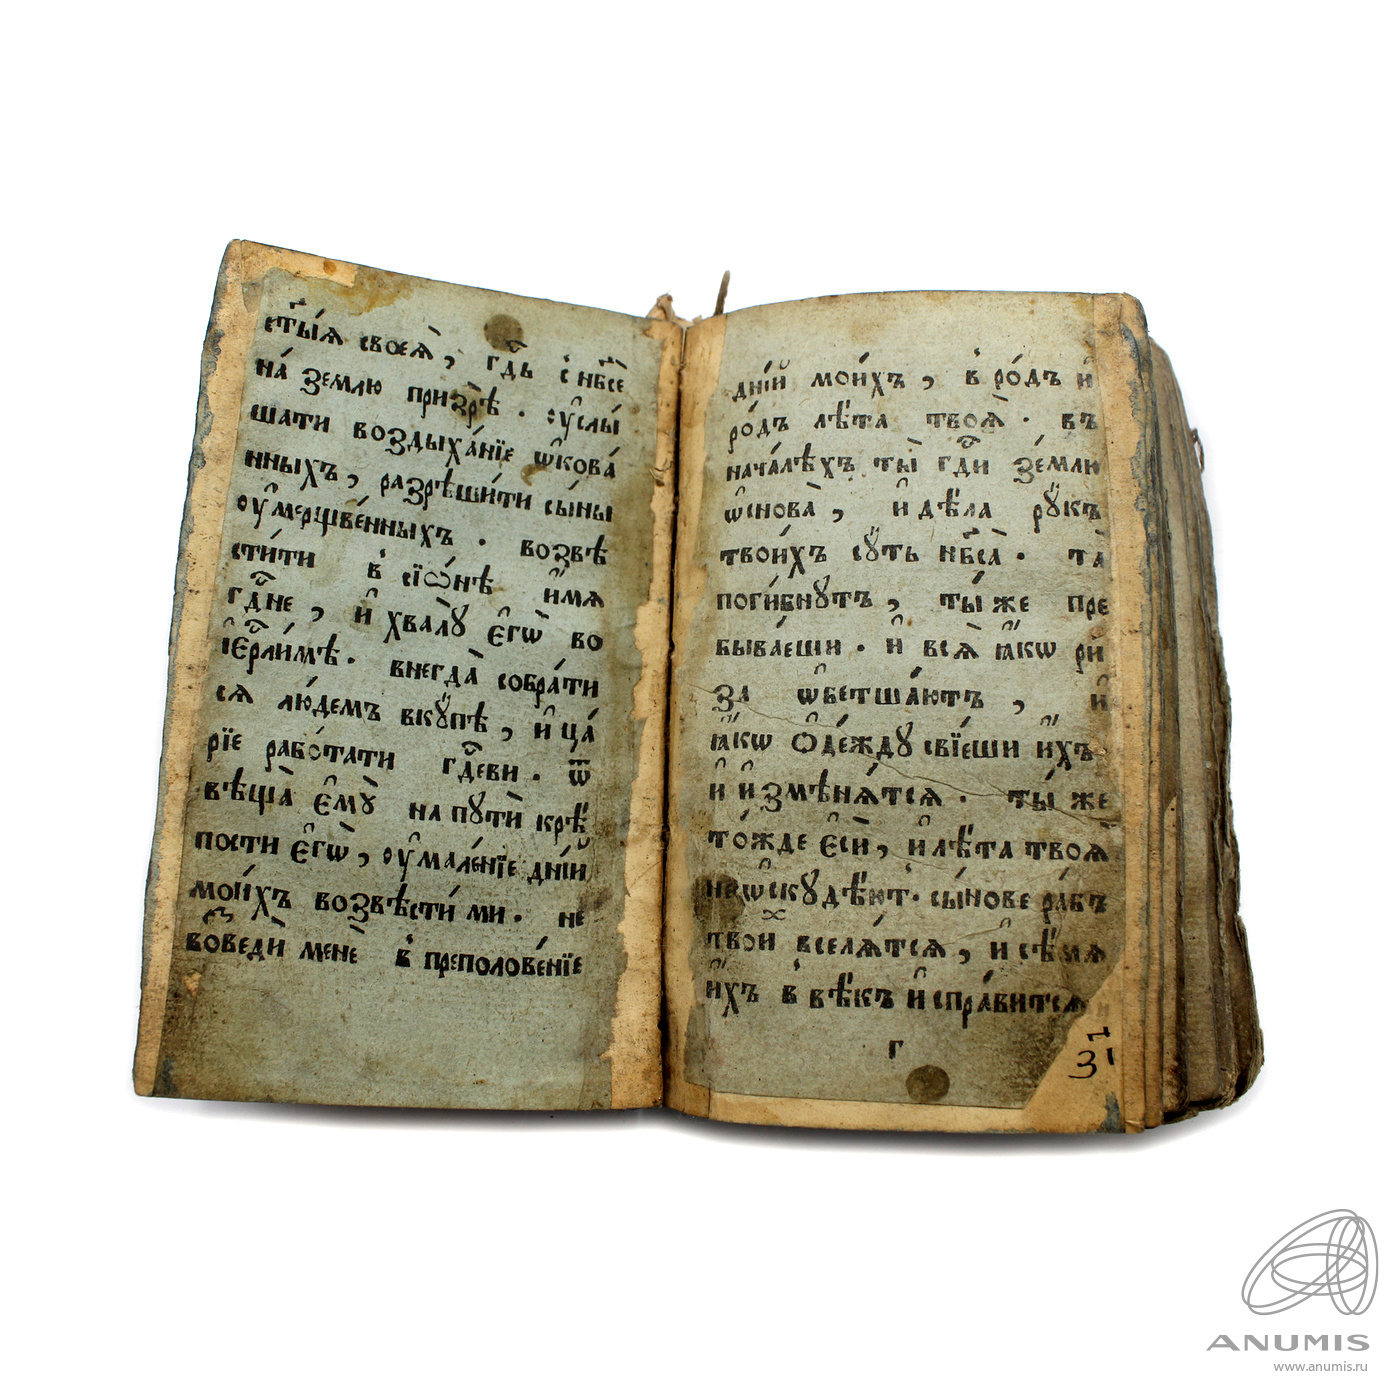 ст҃ы́ѧ своеѧ̀, гдⷭ҇ь с̾ нб҃се
на́ землю призрѣ̀. оу҆слы́
шати воздыха́нїе ѡ҆кова́
нныхъ, разрѣши́ти сы́ны
оу҆мерщвє́нныхъ. возвѣ
сти́ти в̾ сїѡ́нѣ и҆́мѧ
гдⷭ҇не, и҆ хвалꙋ̀ є҆гѡ̀ во
і҆ерⷭ҇ли́мѣ. внегда̀ собра́ти
сѧ лю́демъ вкꙋ́пѣ, и҆ ца́
рїе рабо́тати гдⷭ҇еви. ѿ
вѣща̀ є҆мꙋ̀ на пꙋтѝ крѣ́
пости є҆гѡ̀, оу҆мале́нїе дні́й
мои́хъ возвѣсти́ ми. не
воведѝ менѐ в̾ преполове́нїе
дні́й мои́хъ, в̾ ро́дъ и҆
ро́дъ лѣ́та твоѧ̀. въ
нача́лѣхъ ты̀ гдⷭ҇и зе́млю
ѡ҆снова̀, и҆ дѣ́ла рꙋ́къ
твои́хъ сꙋ́ть нб҃са̀. та̀
поги́бнꙋтъ, ты́ же пре
быва́еши. и҆ всѧ̀ ꙗ҆́кѡ ри́
за ѡ҆бетша́ютъ, и҆
ꙗ҆́кѡ ѻ҆де́ждꙋ свїе́ши и҆̀хъ
и҆ и҆змѣнѧ́тсѧ. ты́ же
то́жде є҆сѝ, и҆ лѣ́та твоѧ̀
не ѡ҆скꙋдѣ́ютъ. сы́нове ра́бъ
твои́хъ вселѧ́тсѧ, и҆ сѣ́мѧ
и҆́хъ в̾ вѣ́къ и҆спра́витсѧ
г
31
ANUMIS
www.anumis.ru